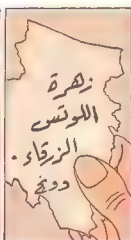 زهرة
اللوتس
الزرقاء.
دونج